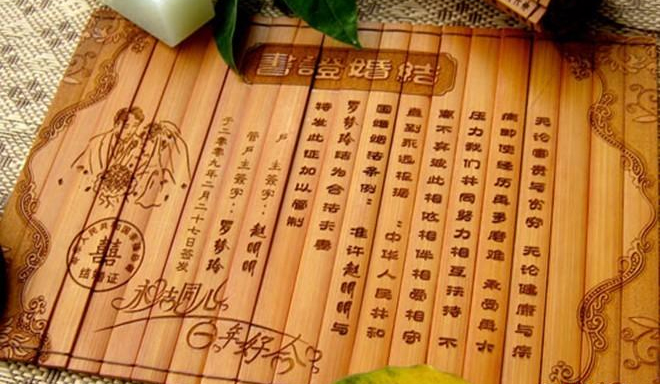 書證婚結
无论富贵与贫穷 无论健康与疾
病即使经历再多磨难 承受再大
压力我们共同努力相互扶持 不
离不弃彼此相依相伴相爱相守
直到永远根据 :中华人民共和
国婚姻法条例: 准许赵明明与
罗梦玲结为合法夫妻
特发此证加以管制
户 主 签字: 赵明明
管户主签字: 罗梦玲
于二零零九年二月二十七日签发
囍
结婚证
永结同心
百年好合